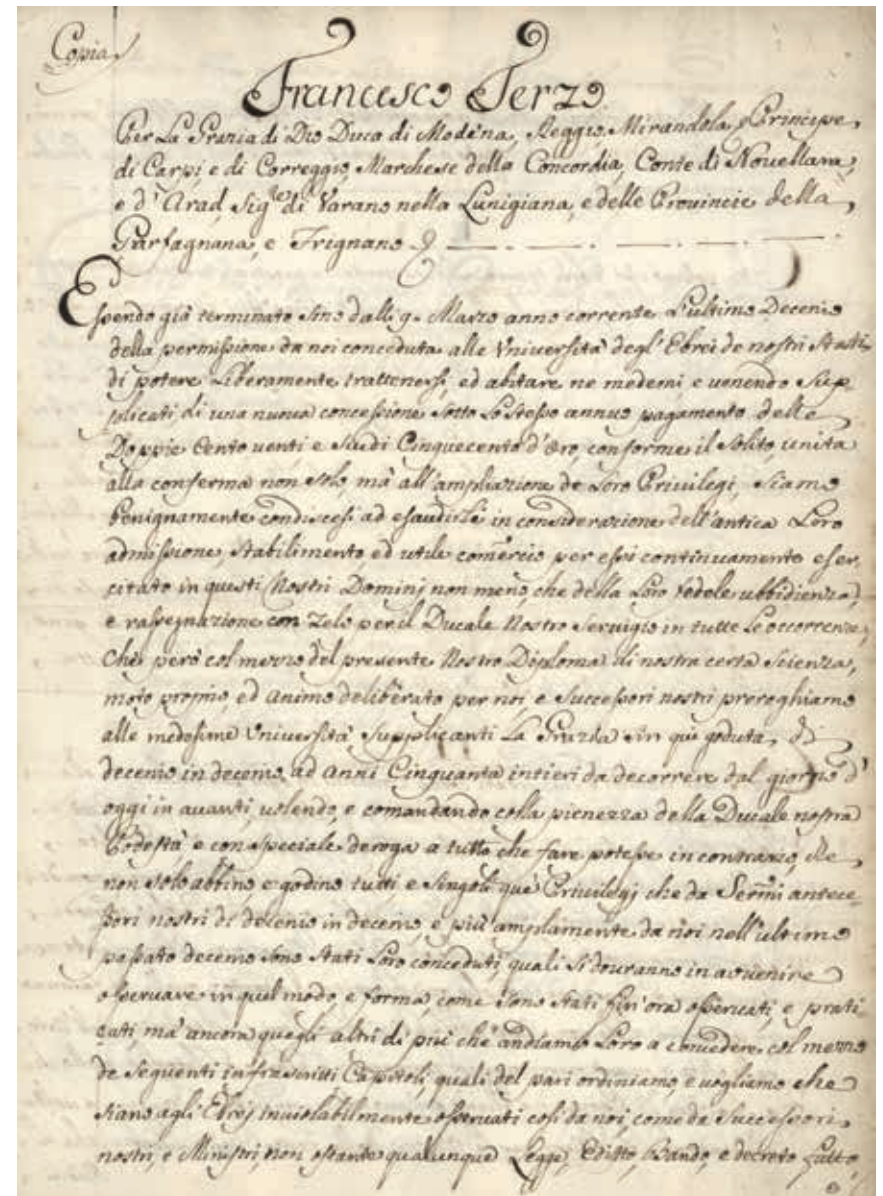 Copia
Francesco Terzo
Per La Grazia di Dio Duca di Modena, Reggio, Mirandola, Principe
di Carpi, e di Correggio, Marchese della Concordia, Conte di Nouellara,
e d'Arad, Sig.re di Varano nella Lunigiana, e delle Prouincie della
Garfagnana, e Frignano &
Essendo già terminato sino dalli 9. Marzo anno corrente L'ultimo Decenio
della permissione da noi conceduta alle Vniversità degl'Ebrei de nostri Stati
di potere Liberamente trattenersi, ed abitare ne medemi, e uenendo Sup-
plicati di una nuoua concessione sotto Lo stesso annuo pagamento delle
Doppie Cento uenti e Scudi Cinquecento d'oro, conforme il Solito, unita
alla conferma non solo, mà all'ampliazione de Loro Priuilegi, Siamo
Benignamente condiscesi ad esaudirle in considerazione dell'antica Loro
admissione, stabilimento, ed utile comercio per essi continuamente eser-
citato in questi Nostri Dominj non meno, che della Loro fedele ubbidienza,
e rassegnazione con Zelo per il Ducale Nostro Seruigio in tutte Le occorrenze,
Che però col mezzo del presente Nostro Diploma di nostra certa Scienza,
moto proprio, ed animo deliberato per noi, e Successori nostri proroghiamo
alle medesime Vniuersità Supplicanti La Grazia sin quì goduta, di
decenio in decenio, ad anni Cinquanta intieri da decorrere dal giorno d'
oggi in auanti, uolendo, e comandando colla pienezza della Ducale nostra
Podestà, e con speciale deroga a tutto che fare potesse in contrario, che
non solo abbino, e godino tutti, e Singoli què Priuilegj che da Ser.mi antece-
ssori nostri di decenio in decenio, e più amplamente da noi nell'ultimo
passato decenio sono stati Loro conceduti, quali si douranno in auuenire
osseruare in quel modo, e forma, come sono stati fin'ora osseruati, e prati
cati, mà ancora quegli altri di più che andiamo Loro a concedere col mezzo
de Seguenti infrascritti Capitoli, quali del pari ordiniamo, e uogliamo che
siano agli Ebrej inuiolabilmente osseruati così da noi, come da Successori
nostri, e Ministri, non ostante qualunque Legge, Editto, Bando, e decreto